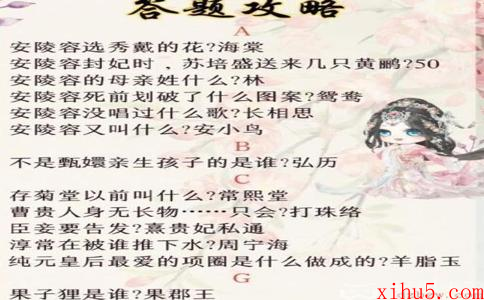 答题攻略
A
安陵容选秀戴的花?海棠
安陵容封妃时，苏培盛送来几只黄鹂?50
安陵容的母亲姓什么?林
安陵容死前划破了什么图案?鸳鸯
安陵容没唱过什么歌?长相思
安陵容又叫什么?安小鸟
B
不是甄嬛亲生孩子的是谁?弘历
C
存菊堂以前叫什么?常熙堂
曹贵人身无长物……只会?打珠络
臣妾要告发?熹贵妃私通
淳常在被谁推下水?周宁海
纯元皇后最爱的项圈是什么做成的?羊脂玉
G
果子狸是谁?果郡王
xihu5.com